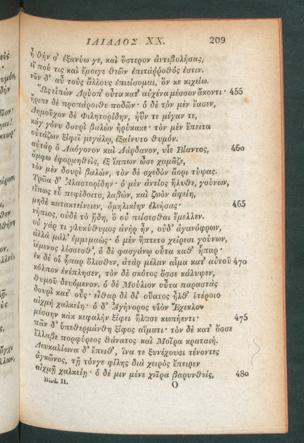 ΙΛΙΑΔΟΣ XX. 209
ἦ θήν σ' ἐξανύω γε, καὶ ὕστερον ἀντιβολήσας,
εἴ πού τις καὶ ἔμοιγε θεῶν ἐπιτάῤῥοθός ἐστιν.
νῦν δ' αὖ τοὺς ἄλλους ἐπιείσομαι, ὅν κε κιχείω.
Ὣς εἰπὼν Δρύοπ' οὖτα κατ' αὐχένα μέσσον ἄκοντι· 455
ἤριπε δὲ προπάροιθε ποδῶν· ὁ δὲ τὸν μὲν ἔασεν,
Δημοῦχον δὲ Φιλητορίδην, ἠΰν τε μέγαν τε,
κὰγ γόνυ δουρὶ βαλὼν ἠρύκακε· τὸν μὲν ἔπειτα
οὐτάζων ξίφεϊ μεγάλῳ, ἐξαίνυτο θυμόν.
αὐτὰρ ὁ Λαόγονον καὶ Δάρδανον, υἷε Βίαντος, 460
ἄμφω ἐφορμηθεὶς, ἐξ ἵππων ὦσε χαμᾶζε,
τὸν μὲν δουρὶ βαλὼν, τὸν δὲ σχεδὸν ἄορι τύψας.
Τρῶα δ' Ἀλαστορίδην· ὁ μὲν ἀντίος ἤλυθε, γούνων,
εἴπως εὑ πεφίδοιτο, λαβὼν, καὶ ζωὸν ἀφείη,
μηδὲ κατακτείνειεν, ὁμηλικίην ἐλεήσας· 465
νήπιος, οὐδὲ τὸ ᾔδη, ὃ οὐ πείσεσθαι ἔμελλεν.
οὐ γάρ τι γλυκύθυμος ἀνὴρ ἦν, οὐδ' ἀγανόφρων,
ἀλλὰ μάλ' ἐμμεμαώς· ὁ μὲν ἥπτετο χείρεσι γούνων,
ἱέμενος λίσσεσθ', ὁ δὲ φασγάνῳ οὖτα καθ' ἧπαρ·
ἐκ δέ οἱ ἧπαρ ὄλισθεν, ἀτὰρ μέλαν αἷμα κατ' αὐτοῦ 470
κόλπον ἐνέπλησεν, τὸν δὲ σκότος ὄσσε κάλυψεν,
θυμοῦ δευόμενον. ὁ δὲ Μούλιον οὖτα παραστὰς
δουρὶ κατ' οὖς· εἶθαρ δὲ δι' οὔατος ἦλθ' ἑτέροιο
αἰχμὴ χαλκείη· ὁ δ' Ἀγήνορος υἱὸν Ἔχεκλον
μέσσην κὰκ κεφαλὴν ξίφει ἤλασε κωπήεντι· 475
πᾶν δ' ὑπεθερμάνθη ξίφος αἵματι· τὸν δὲ κατ' ὄσσε
ἔλλαβε πορφύρεος θάνατος καὶ Μοῖρα κραταιή.
Δευκαλίωνα δ' ἔπειθ', ἵνα τε ξυνέχουσι τένοντες
ἀγκῶνος, τῇ τόνγε φίλης διὰ χειρὸς ἔπειρεν
αἰχμῇ χαλκείῃ· ὁ δέ μιν μένε χεῖρα βαρυνθεὶς, 480
O